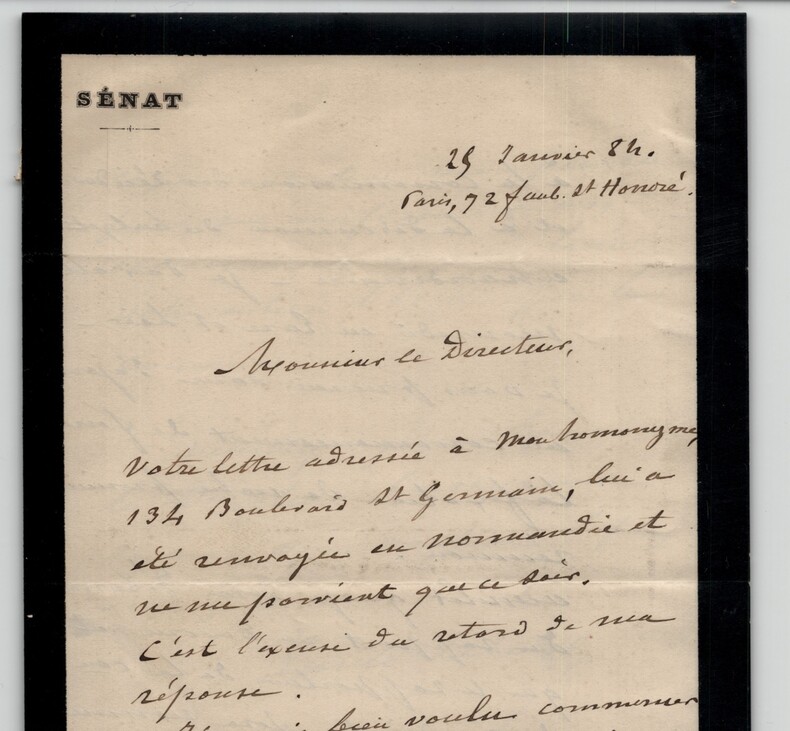 SÉNAT
25 Janvier 84.
Paris, 72 faub. St Honoré.
Monsieur le Directeur,
Votre lettre adressée à mon homonyme,
134 Boulevard St Germain, lui a
été renvoyée en Normandie et
ne me parvient que ce soir.
C'est l'excuse du retard de ma
réponse.
bien voulu commencer